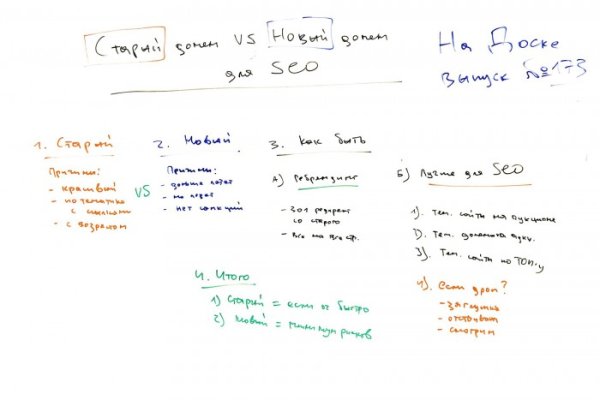 Старый домен VS Новый домен
для SEO
На Доске
выпуск №173
1. Старый
Причины:
- красивый
- по тематике
с ссылками
- с возрастом
VS
2. Новый
Причины:
- дольше
- нет санкций
3. Как быть
А) Ребрендинг
- 301 редирект
со старого
- Все на все стр.
Б) Лучше для SEO
1). Тем. сайты на аукционе
2). Тем. домены аукц.
3). Тем. сайты по ТОПу
4). Если дроп?
- заглушка
- отстаивать
- смотрим
4. Итого
1) Старый = если ок быстро
2) Новый = минимум рисков